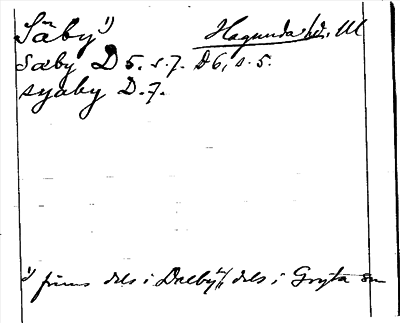 Säby 1) Hagunda hd. Ul
Sæby D 5. s. 7. D 6, s. 5.
syæby D. 7.
1) finns dels i Dalby, dels i Gryta sn